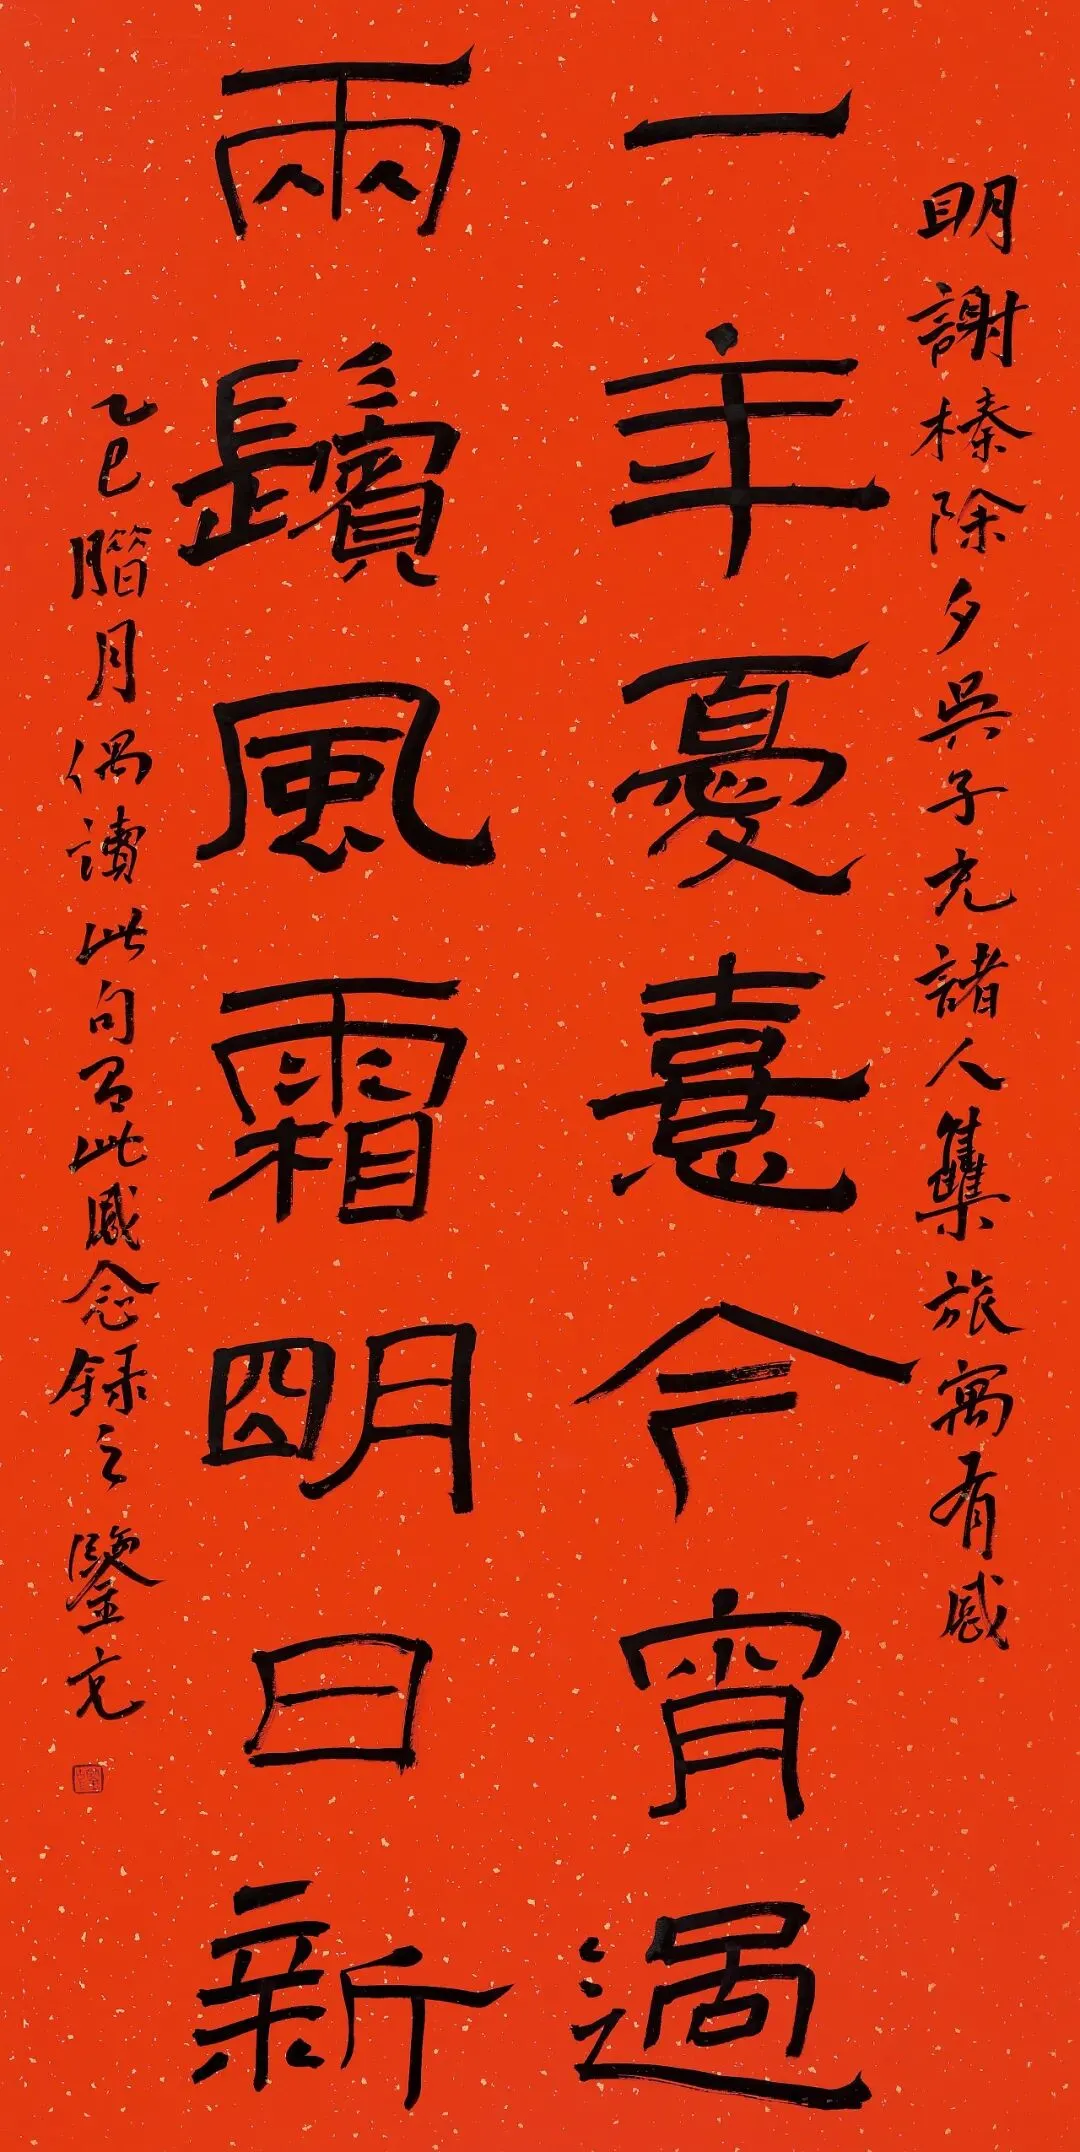 明謝榛除夕吳子充諸人集旅寓有感
一年憂憙今宵過
兩鬢風霜明日新
乙巳腊月偶讀此句有此感念錄之鑒克